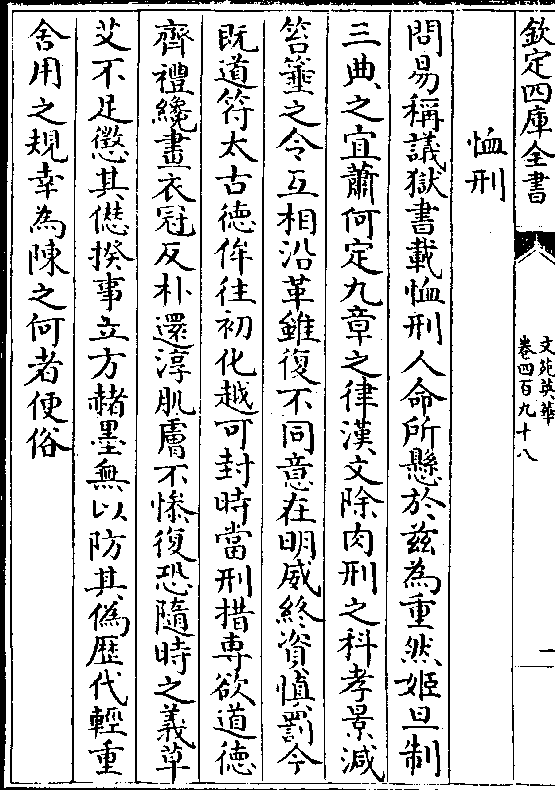 欽定四庫全書
文苑英華
卷四百九十八
一
恤刑
問易稱議獄書載恤刑人命所懸於兹為重然姬旦制
三典之宜蕭何定九章之律漢文除肉刑之科孝景減
笞箠之令互相沿革雖復不同意在明威終資慎罰今
既道符太古德侔往初化越可封時當刑措専欲道德
齊禮纔畫衣冠反朴還淳肌膚不慘復恐隨時之義草
艾不足懲其僁揆事立方赭墨無以防其偽歴代輕重
舍用之規幸為陳之何者便俗